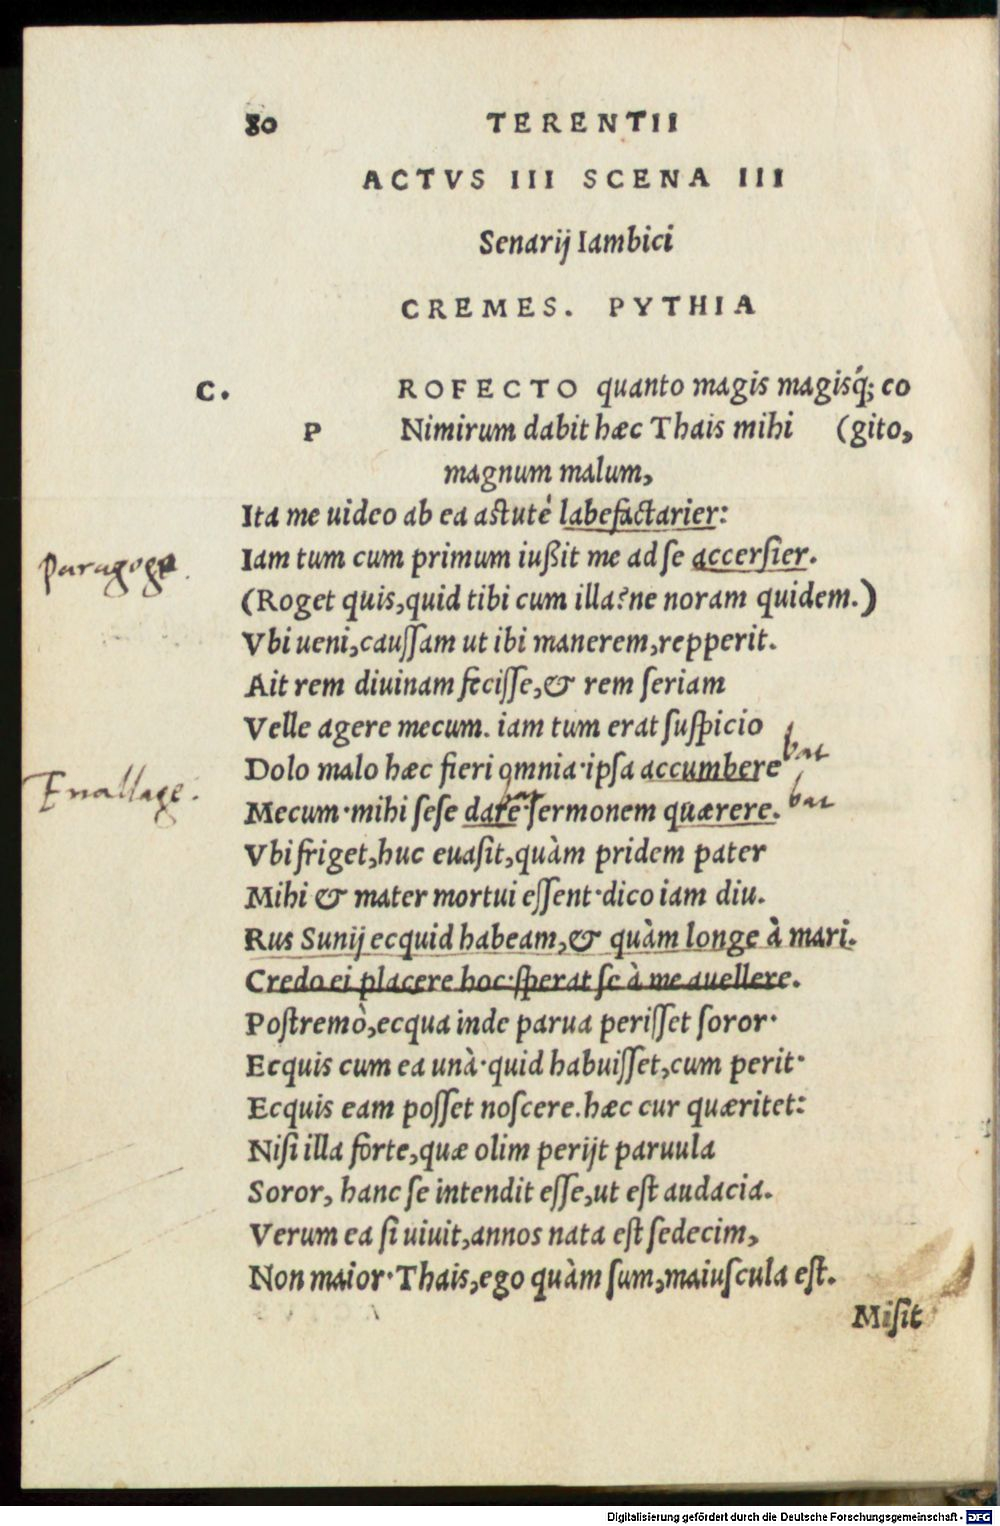 80 TERENTII
ACTVS III SCENA III
Senarij Iambici
CREMES. PYTHIA
C. ROFECTO quanto magis magisq́; co
P Nimirum dabit hæc Thais mihi (gito,
magnum malum,
Ita me uideo ab ea astuté labefactarier:
Paragoge. Iam tum cum primum iußit me ad se accersier.
(Roget quis, quid tibi cum illa? ne noram quidem.)
Vbi ueni, caussam ut ibi manerem, repperit.
Ait rem diuinam fecisse, & rem seriam
Velle agere mecum. iam tum erat suspicio
Dolo malo hæc fieri omnia· ipsa accumbere bat
Enallage. Mecum· mihi sese dare· sermonem quærere. bat
bat
Vbi friget, huc euasit, quàm pridem pater
Mihi & mater mortui essent· dico iam diu.
Rus Sunij ecquid habeam, & quàm longe à mari.
Credo ei placere hoc· sperat se à me auellere.
Postremò, ecqua inde parua perisset soror·
Ecquis cum ea unà· quid habuisset, cum perit·
Ecquis eam posset noscere. hæc cur quæritet:
Nisi illa forte, quæ olim perijt paruula
Soror, hanc se intendit esse, ut est audacia.
Verum ea si uiuit, annos nata est sedecim,
Non maior· Thais, ego quàm sum, maiuscula est.
Misit
Digitalisierung gefördert durch die Deutsche Forschungsgemeinschaft - DFG